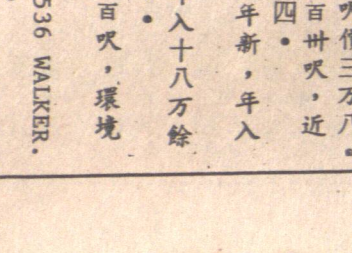 呎僅三万八
百卅呎，近
四●
年新，年入
入十八万餘
●
百呎，環境
536 WALKER.